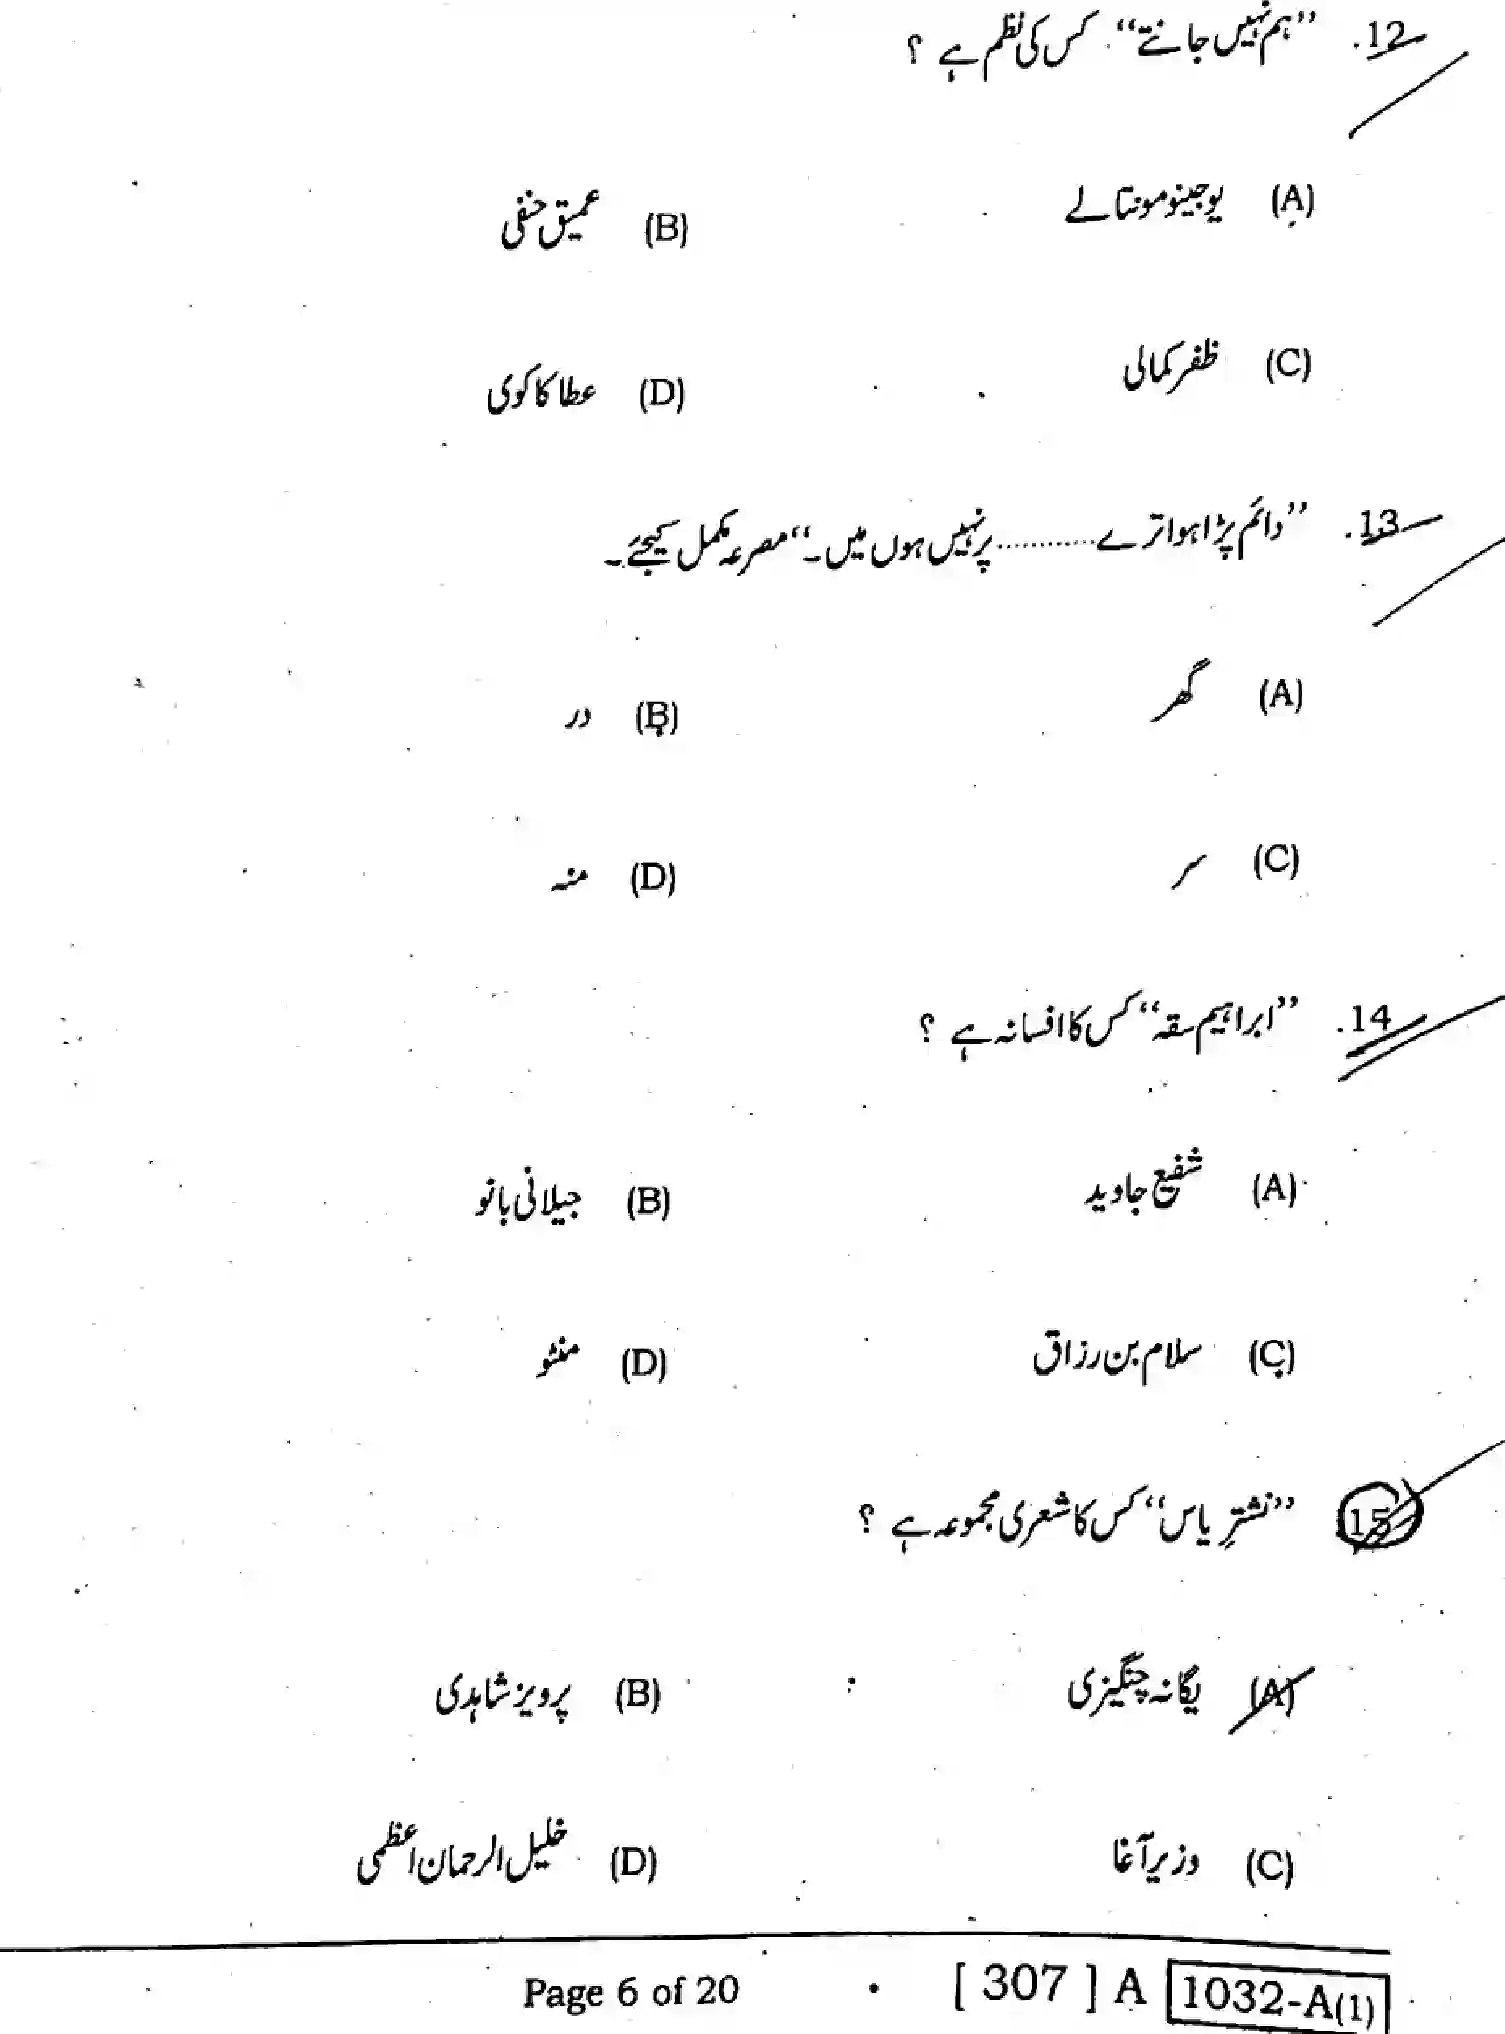 12. ”ہم نہیں جانتے“ کس کی نظم ہے ؟
(A) یوجینو مونتالے (B) عمیق حنفی
(C) ظفر کمالی (D) عطا کاکوی
13. ”دائم پڑا ہوا ترے ........... پر نہیں ہوں میں۔“ مصرعہ مکمل کیجئے۔
(A) گھر (B) در
(C) سر (D) منہ
14. ”ابراہیم سقہ“ کس کا افسانہ ہے ؟
(A) شفیع جاوید (B) جیلانی بانو
(C) سلام بن رزاق (D) منٹو
15 ”نشترِ یاس“ کس کا شعری مجموعہ ہے ؟
(A) یگانہ چنگیزی (B) پرویز شاہدی
(C) وزیر آغا (D) خلیل الرحمان اعظمی
Page 6 of 20 [ 307 ] A 1032-A(1)